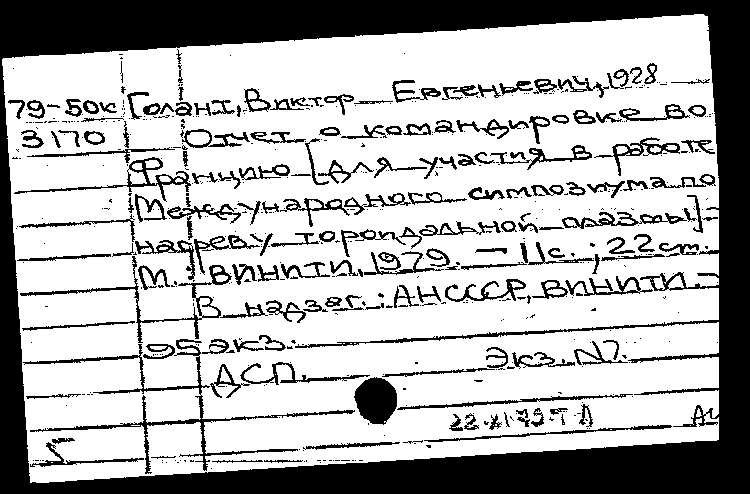 79-50к Голант, Виктор Евгеньевич, 1928
3170 Отчет о командировке во
Францию [для участия в работе
Международного симпозиума по
нагреву тороидальной плазмы].-
М.: ВИНИТИ, 1979. - 11с.; 22см.
В надзаг.: АН СССР, ВИНИТИ. -
95 экз.
ДСП. Экз. N7.
22.XI.79